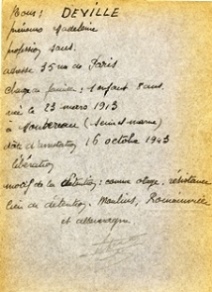 Nom : DEVILLE
prénoms Madeleine
profession sans.
adresse 35 rue de Paris
charge de famille : 1 enfant 8 ans.
née le 23 mars 1913
à Montereau (Seine et marne)
date d'arrestation 16 octobre 1943
libération
motif de la détention : comme otage, résistance
lieu de détention. Moulins, Romainville
et allemagne.